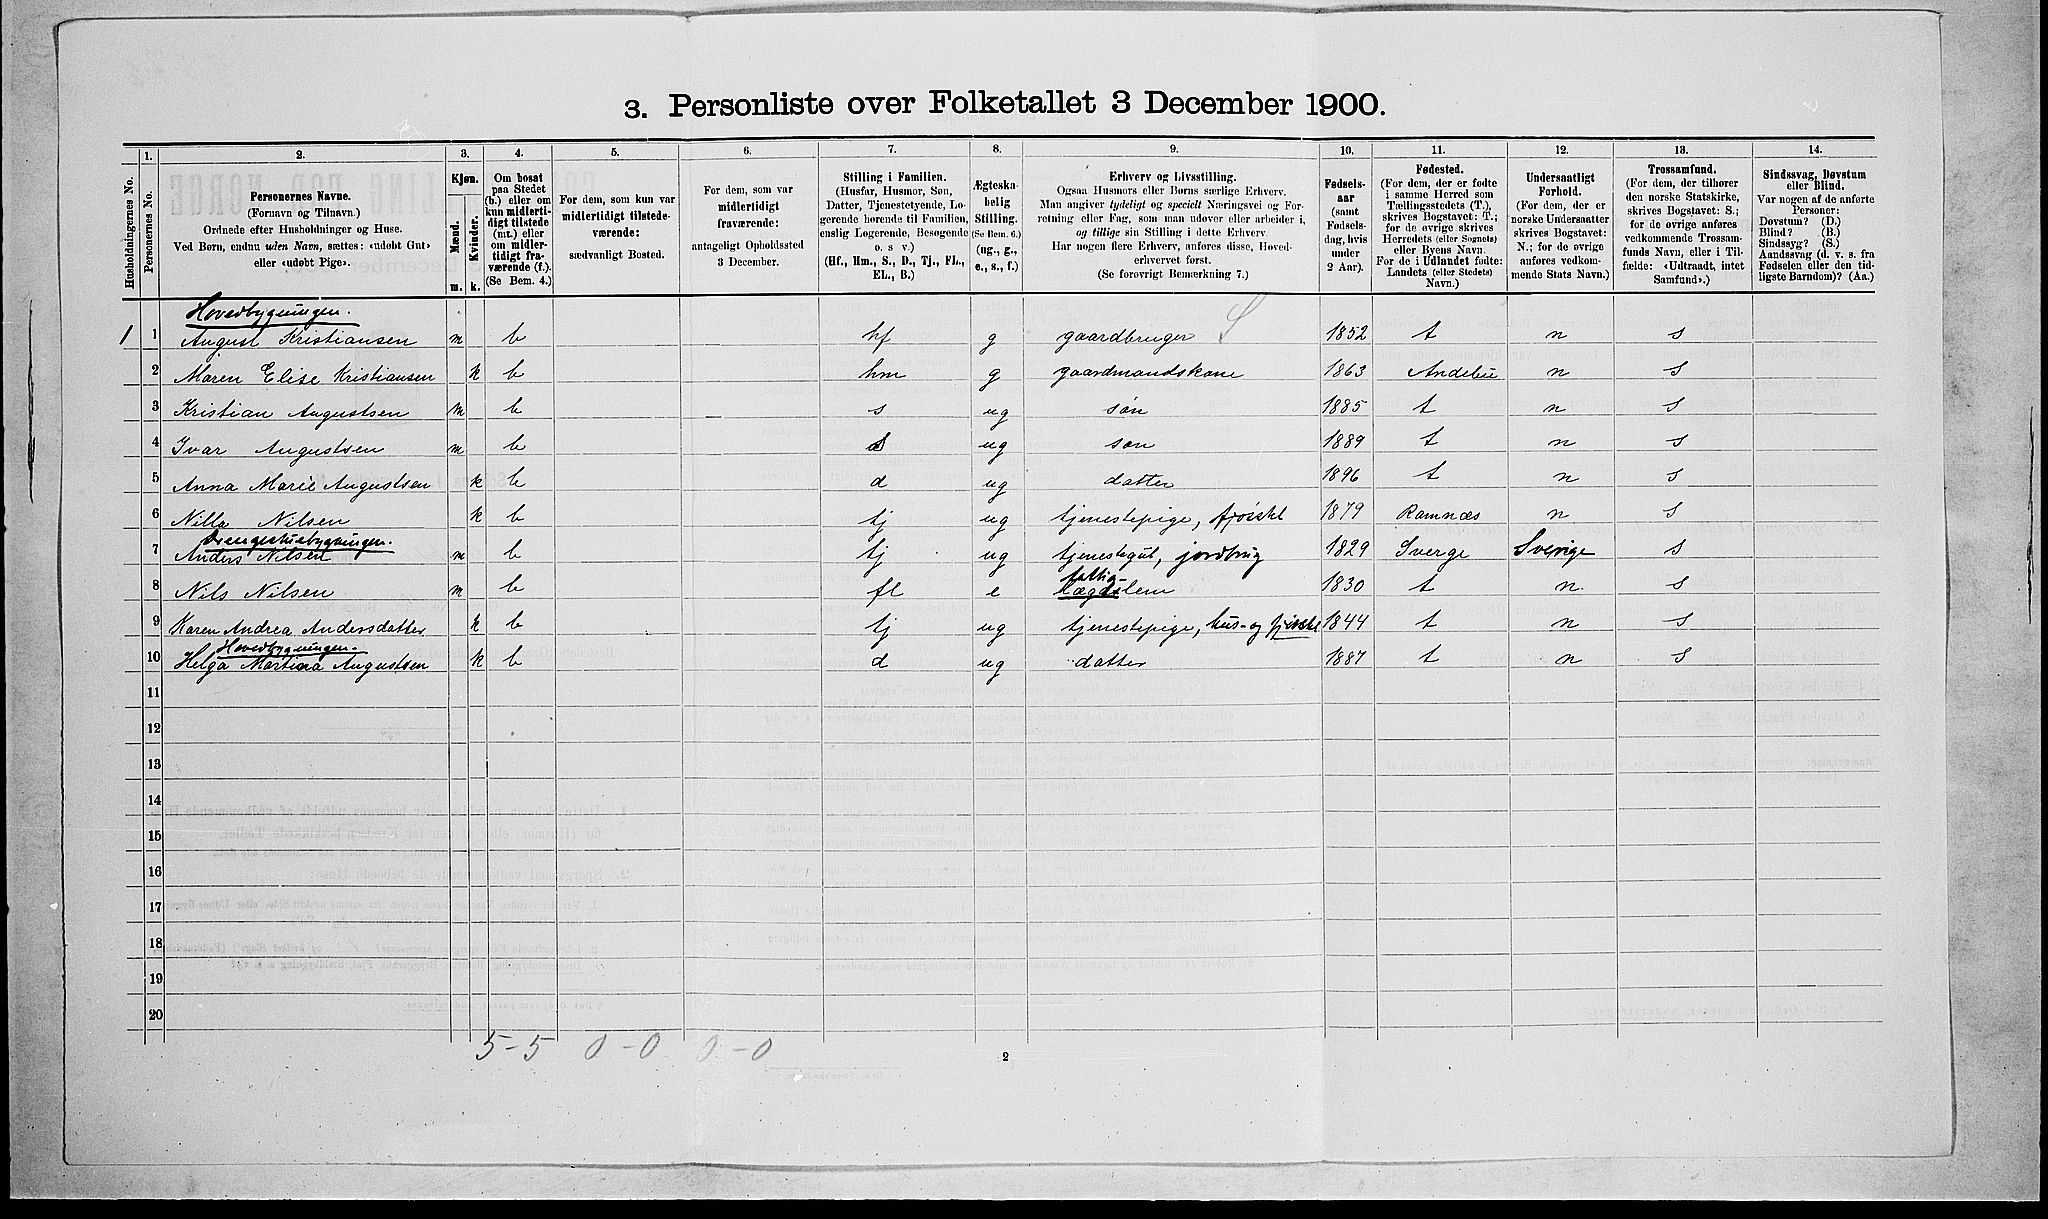 3. Personliste over Folketallet 3 December 1900.
Husholdningernes No.
1. Personernes No.
2. Personernes Navne.
(Fornavn og Tilnavn.)
Ordnede efter Husholdninger og Huse.
Ved Børn, endnu uden Navn, sættes: «udøbt Gut»
eller «udøbt Pige».
3. Kjøn.
Mænd. m.
Kvinder. k.
4. Om bosat
paa Stedet
(b.) eller om
kun midlerti-
digt tilstede
(mt.) eller
om midler-
tidigt fra-
værende (f.).
(Se Bem. 4.)
5. For dem, som kun var
midlertidigt tilstede-
værende:
sædvanligt Bosted.
6. For dem, som var
midlertidigt
fraværende:
antageligt Opholdssted
3 December.
7. Stilling i Familien.
(Husfar, Husmor, Søn,
Datter, Tjenestetyende, Lo-
gerende hørende til Familien,
enslig Logerende, Besøgende
o. s. v.)
(Hf., Hm., S., D., Tj., FL.,
EL., B.)
8. Ægteska-
belig
Stilling.
(Se Bem. 6.)
(ug., g.,
e., s., f.)
9. Erhverv og Livsstilling.
Ogsaa Husmors eller Børns særlige Erhverv.
Man angiver tydeligt og specielt Næringsvei og For-
retning eller Fag, som man udøver eller arbeider i,
og tillige sin Stilling i dette Erhverv.
Har nogen flere Erhverv, anføres disse, Hoved-
erhvervet først.
(Se forøvrigt Bemærkning 7.)
10. Fødsels-
aar
(samt
Fødsels-
dag, hvis
under
2 Aar).
11. Fødested.
(For dem, der er fødte
i samme Herred som
Tællingsstedets (T.),
skrives Bogstavet: T.;
for de øvrige skrives
Herredets (eller Sognets)
eller Byens Navn.
For de i Udlandet fødte:
Landets (eller Stedets)
Navn.)
12. Undersaatligt
Forhold.
(For dem, der er
norske Undersaatter
skrives Bogstavet:
N.; for de øvrige
anføres vedkom-
mende Stats Navn.)
13. Trossamfund.
(For dem, der tilhører
den norske Statskirke,
skrives Bogstavet: S.;
for de øvrige anføres
vedkommende Trossam-
funds Navn, eller i Til-
fælde: «Udtraadt, intet
Samfund».)
14. Sindssvag, Døvstum
eller Blind.
Var nogen af de anførte
Personer:
Døvstum? (D.)
Blind? (B.)
Sindssyg? (S.)
Aandssvag (d. v. s. fra
Fødselen eller den tid-
ligste Barndom)? (Aa.)
Hovedbygningen.
1 1 August Kristiansen m b hf g gaardbruger S 1852 t n s
2 Maren Elise Kristiansen k b hm g gaardmandskone 1863 Andebu n s
3 Kristian Augustsen m b s ug søn 1885 t n s
4 Ivar Augustsen m b s ug søn 1889 t n s
5 Anna Marie Augustsen k b d ug datter 1896 t n s
6 Nilla Nilsen k b tj ug tjenestepige, fjøsstel 1879 Ramnæs n s
Drengestuebygningen.
7 Anders Nilsen m b tj ug tjenestegut, jordbrug 1829 Sverge Sverige s
8 Nils Nilsen m b fl e fattig- lægdslem 1830 t n. s
9 Karen Andrea Andersdatter k b tj ug tjenestepige, hus- og fjøsstel 1844 t n s
Hovedbygningen.
10 Helga Martina Augustsen k b d ug datter 1887 t n s
11
12
13
14
15
16
17
18
19
20
5-5 0-0 0-0
2